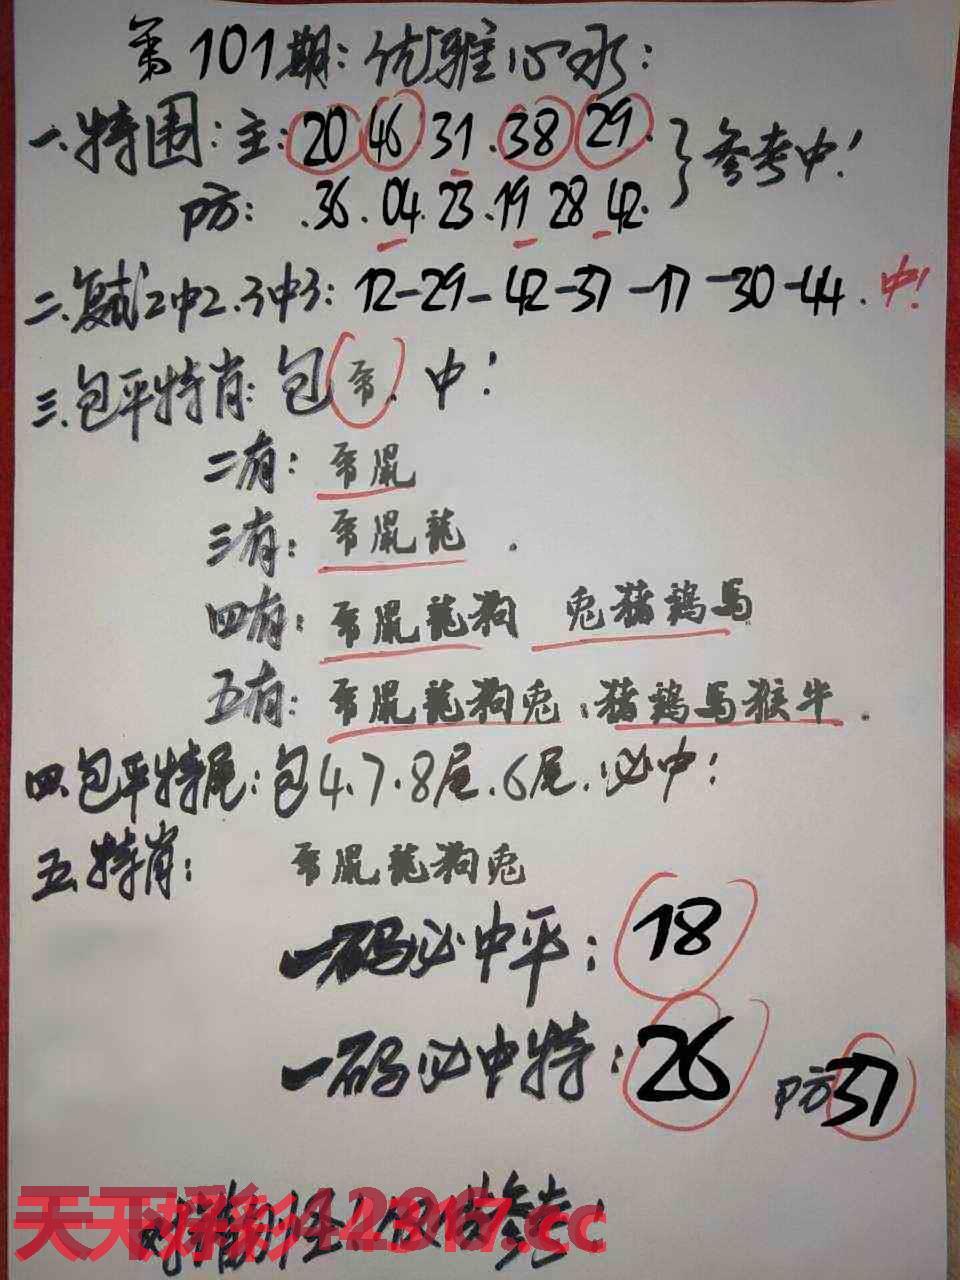 第101期:优雅心水:
一.特围:主:20 46 31.38 29.
防:.36.04.23.19 28 42.
}参考中!
二.复式2中2.3中3:12-29-42-37-17-30-44.中!
三.包平特肖:包 . 中!
二有:
三有: 龍 .
四有: 龍狗 兔猪鷄馬
五有: 龍狗兔 猪鷄馬猴牛.
四.包平特尾:包4.7.8尾.6尾.必中!
五.特肖: 龍狗兔
一码必中平:18
一码必中特:26 防37
天天 .cc
参考!